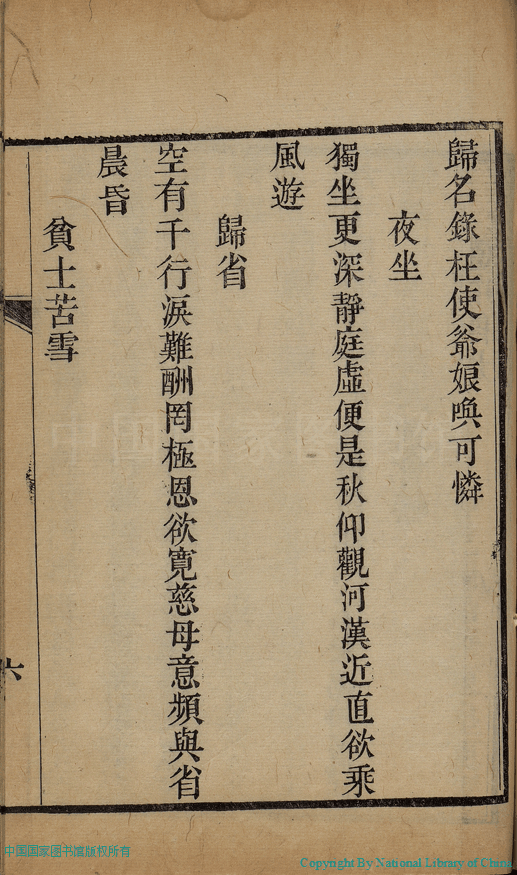 歸名錄枉使爺娘喚可憐
夜坐
獨坐更深靜庭虛便是秋仰觀河漢近直欲乘
風遊
歸省
空有千行淚難酬罔極恩欲寬慈母意頻與省
晨昏
貧士苦雪
六
中国国家图书馆版权所有
Copyright By National Library of China